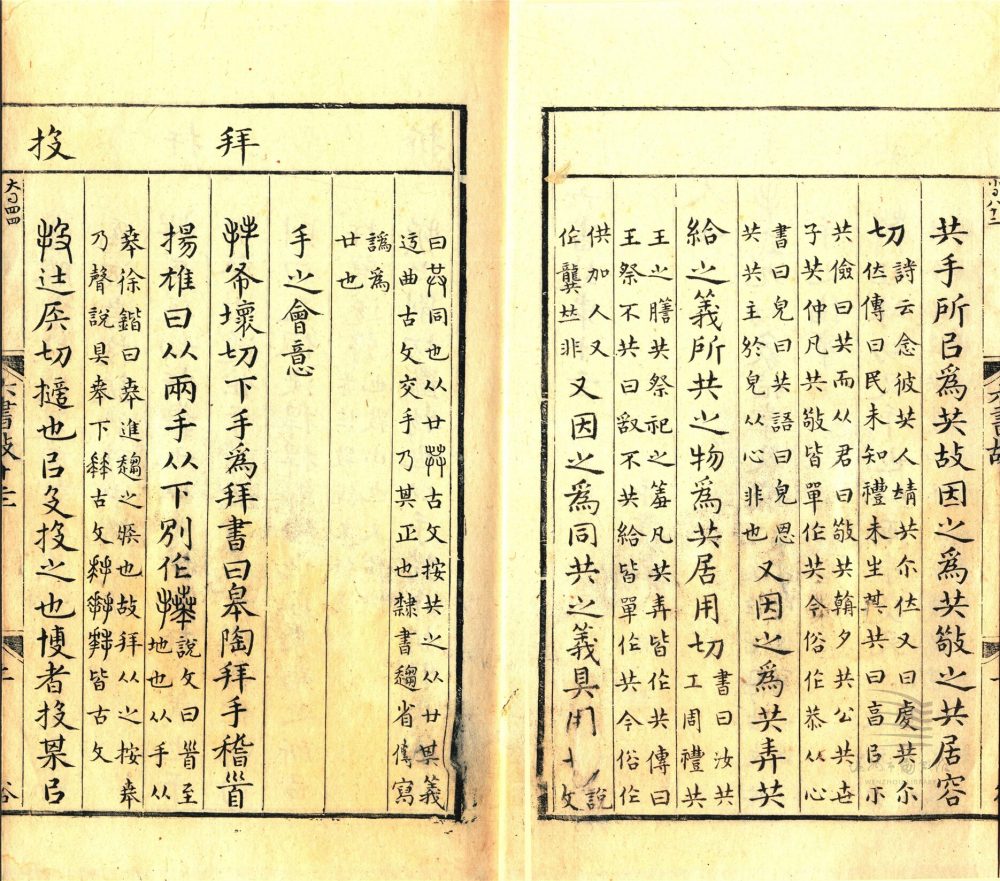 共手所㠯爲共故因之爲共敬之共居容
切
詩云念彼共人靖共尔位又曰虔共尔
傳曰民未知禮未生其共曰㠯示
共儉曰共而从君曰敬共朝夕共公共世
子共仲凡共敬皆單作共今俗作恭从心
書曰皃曰共語曰皃思
共共主於皃从心非也
又因之爲共弄共
給之義所共之物爲共居用切
書曰汝共
工周禮共
王之膳共祭祀之羞凡共弄皆作共傳曰
王祭不共曰敢不共給皆單作共今俗作
供加人又
作龔𠀤非
又因之爲同共之義具用
說
文
拜
投
曰同也从廿古文按共之从廿其義
迂曲古文交手乃其正也隸書趨省傳寫
譌爲
廿也
手之會意
布壞切下手爲拜書曰皋陶拜手稽首
揚雄曰从兩手从下別作
說文曰首至
地也从手从
𠦪徐鍇曰𠦪進趨之疾也故拜从之按𠦪
乃聲說具𠦪下古文皆古文
投
切擿也㠯殳投之也博者投某㠯
六書故